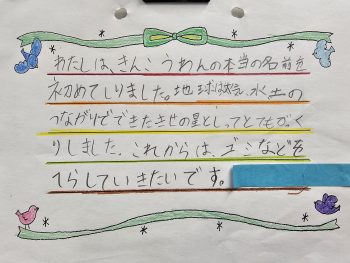 わたしは、きんこうわんの本当の名前を
初めてしりました。地球は 水 土の
つながりでできたきせの星としってとてもびっく
りしました。これからは、ゴミなどを
へらしていきたいです。